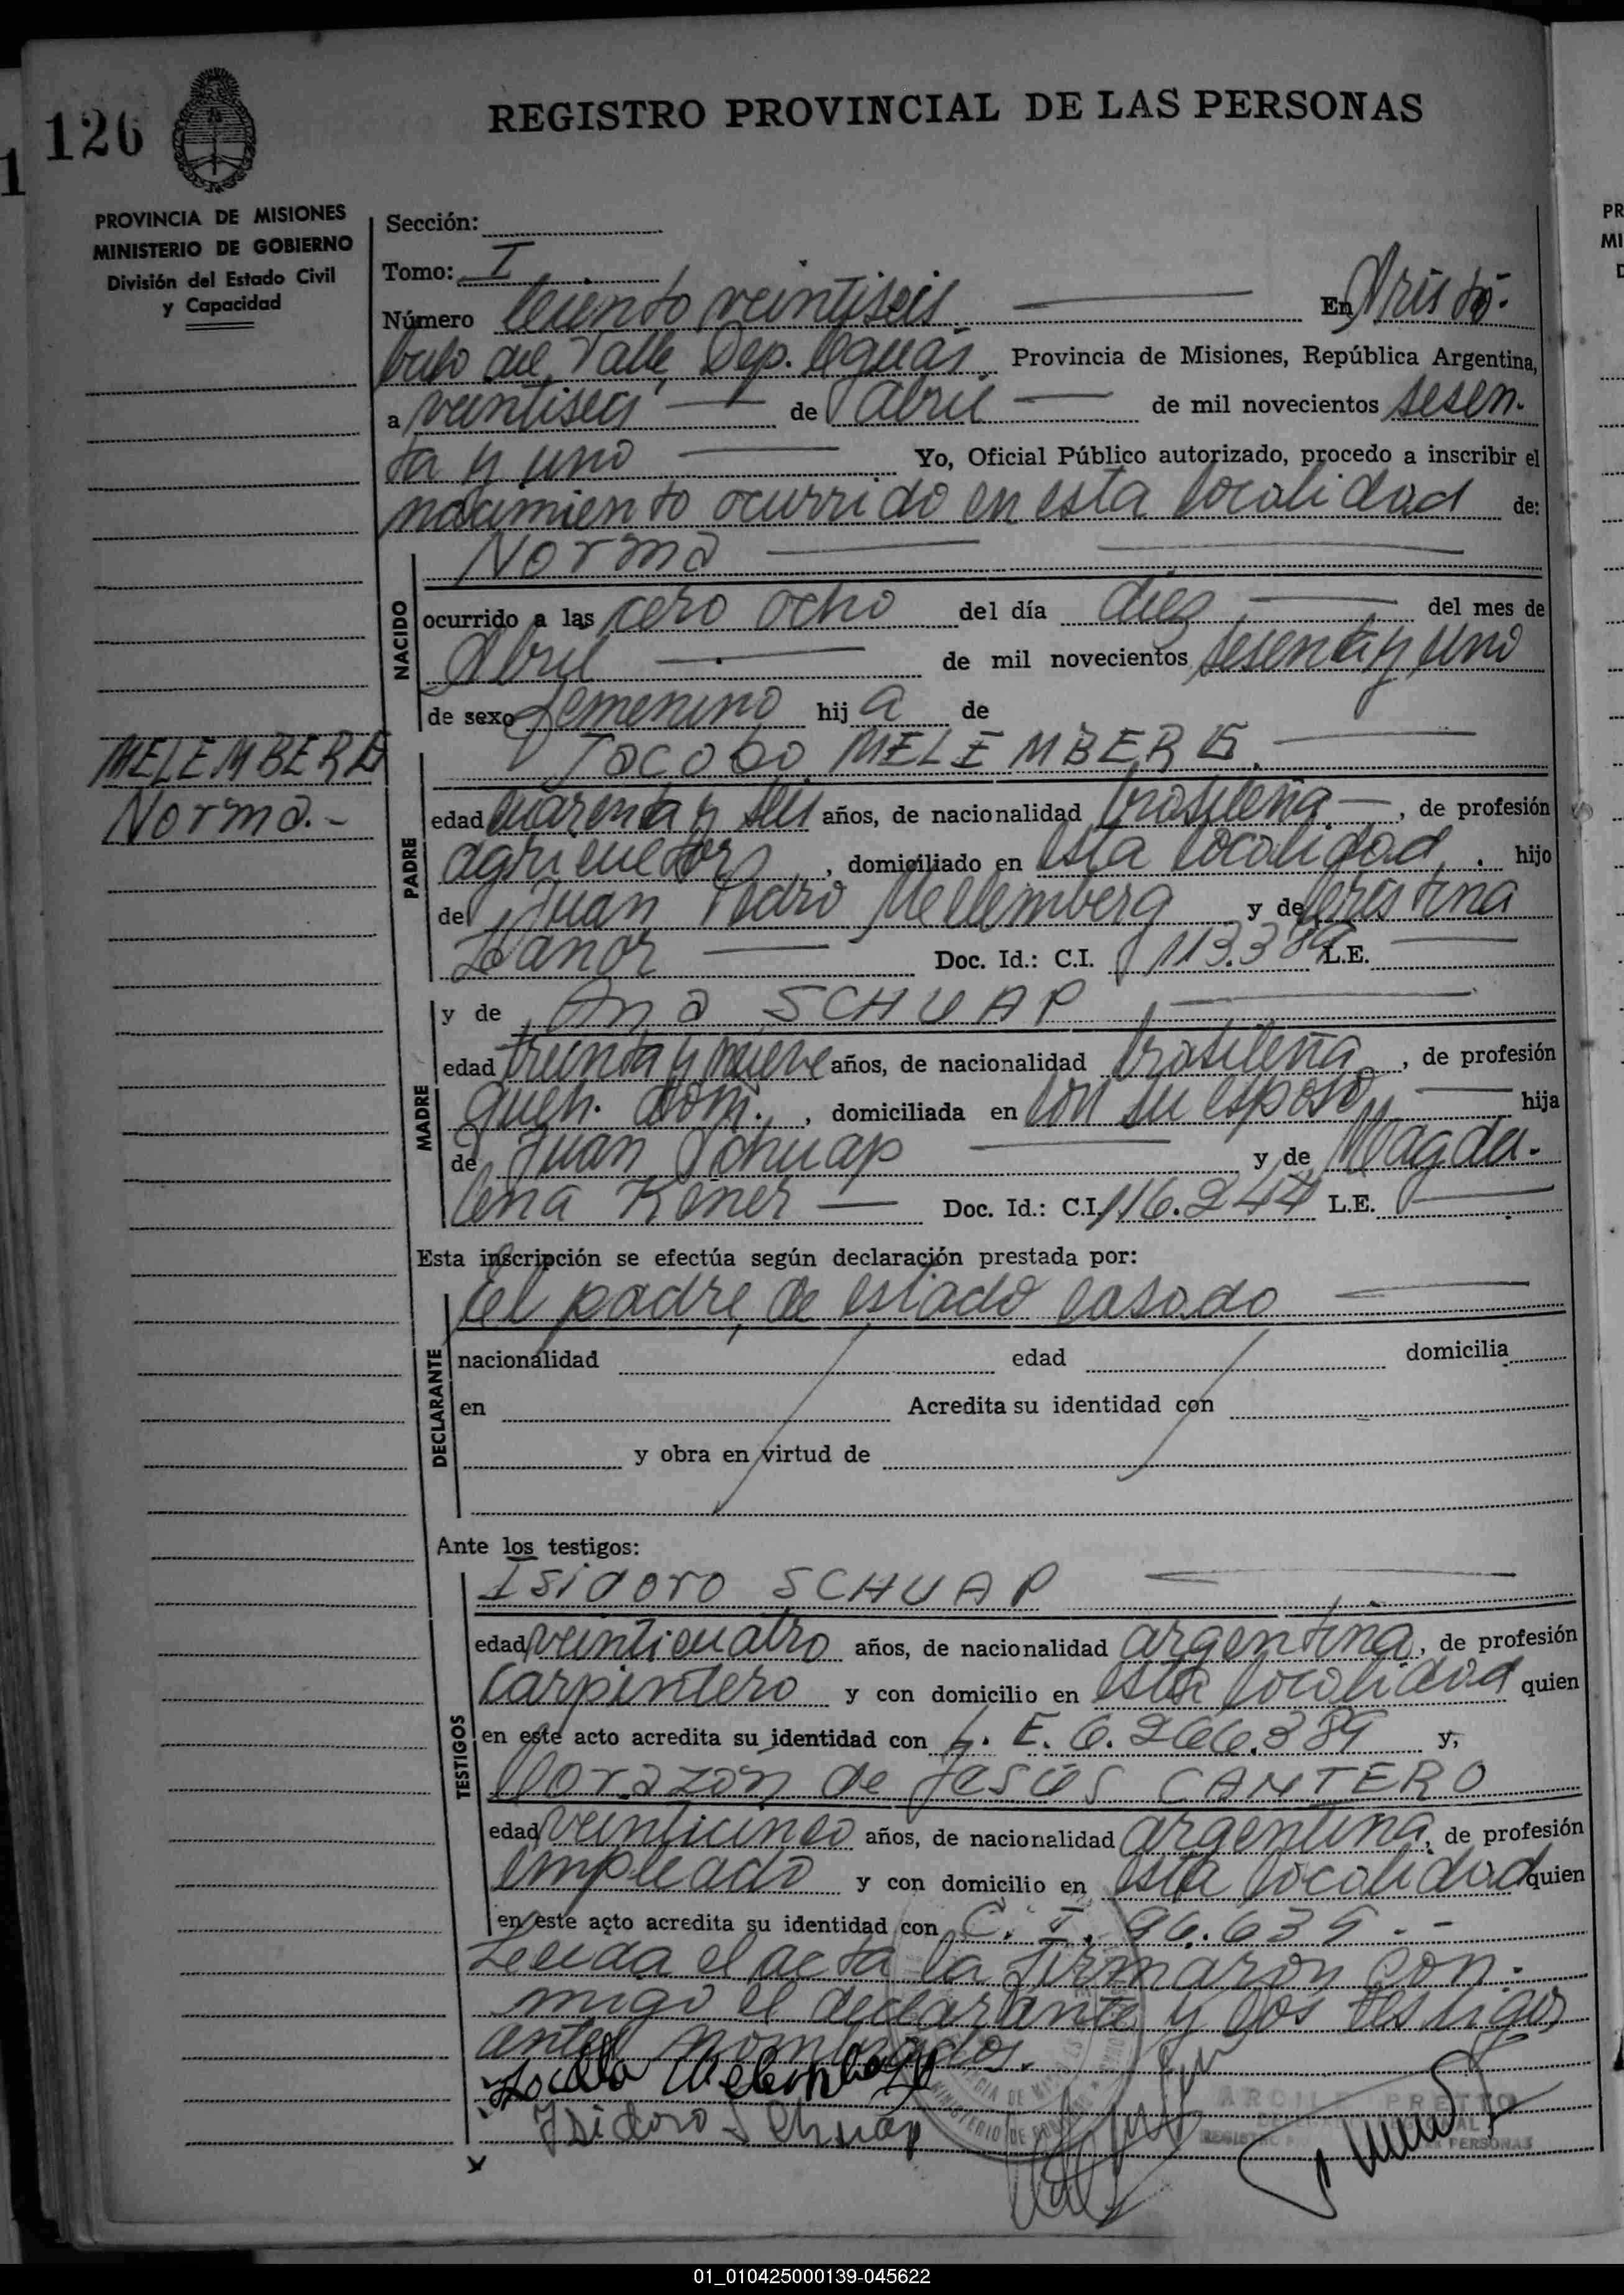 126
REGISTRO PROVINCIAL DE LAS PERSONAS
PROVINCIA DE MISIONES
MINISTERIO DE GOBIERNO
División del Estado Civil
y Capacidad
Sección:
Tomo: I
Número Ciento veintiseis En Aristó-
bulo del Valle, Dep. Cguás Provincia de Misiones, República Argentina,
a veintiseis de abril de mil novecientos sesen-
ta y uno Yo, Oficial Público autorizado, procedo a inscribir el
nacimiento ocurrido en esta localidad de:
NACIDO
Norma
ocurrido a las cero ocho del día diez del mes de
Abril de mil novecientos sesenta y uno
de sexo femenino hija de
MELEMBERG
Norma.-
PADRE
Jacobo MELEMBERG.
edad cuarenta y seis años, de nacionalidad brasileña, de profesión
agricultor, domiciliado en esta localidad, hijo
de Juan Pedro Mellemberg y de Cristina
Doc. Id.: C.I. 113.389 L.E.
MADRE
y de Ana SCHUAP
edad treinta y nueve años, de nacionalidad brasileña, de profesión
queh. dom., domiciliada en con su esposo hija
de Juan Schuap y de Magda-
lena Kener Doc. Id.: C.I. 116.244 L.E.
Esta inscripción se efectúa según declaración prestada por:
DECLARANTE
el padre, de estado casado
nacionalidad edad domicilia
en Acredita su identidad con
y obra en virtud de
Ante los testigos:
TESTIGOS
Isidoro SCHUAP
edad veinticuatro años, de nacionalidad argentina, de profesión
carpintero y con domicilio en esta localidad quien
en este acto acredita su identidad con L. E. 6.266.389 y,
Corazón de Jesús CANTERO
edad veinticinco años, de nacionalidad argentina, de profesión
empleado y con domicilio en esta localidad quien
en este acto acredita su identidad con C. I. 96.635.-
Leida el acta la firmaron con-
migo el declarante y los testigos
antes nombrados.
Isidoro Schuap
PRETTO
PERSONAS
01_010425000139-045622